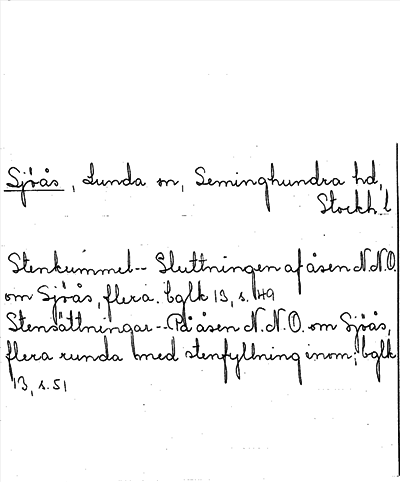 Sjöås, Lunda sn, Seminghundra hd,
Stockh. l
Stenkummel-- Sluttningen af åsen N.N.O.
om Sjöås, flera. bglk 13, s. 49
Stensättningar--På åsen N.N.O. om Sjöås,
flera runda med stenfyllning inom; bglk
13, s. 51